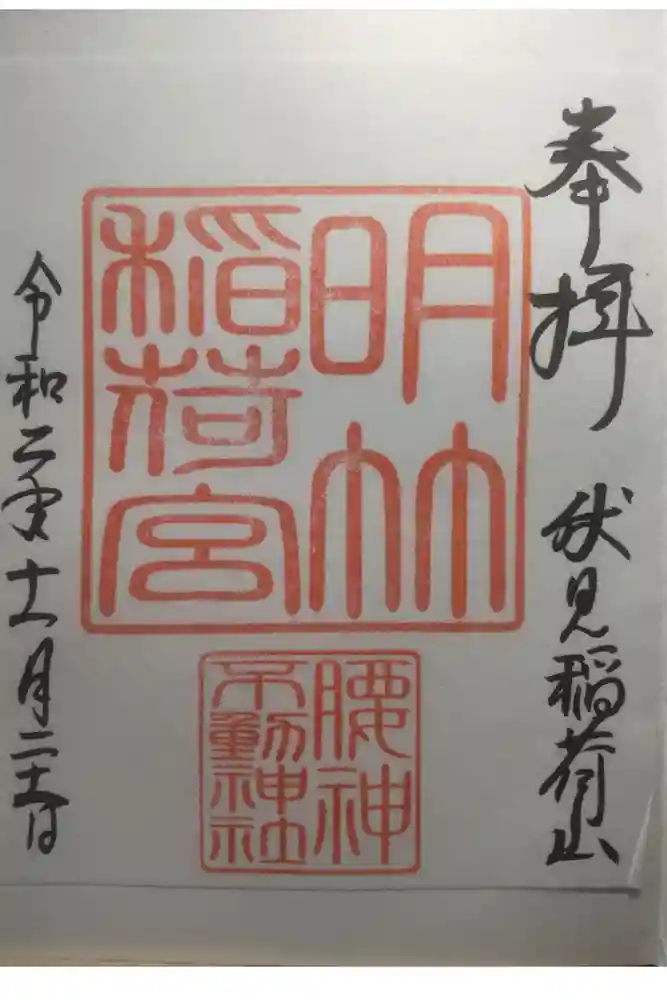 奉拝 伏見稲荷山
明竹
稲荷宮
腰神
不動神社
令和二年十一月二十